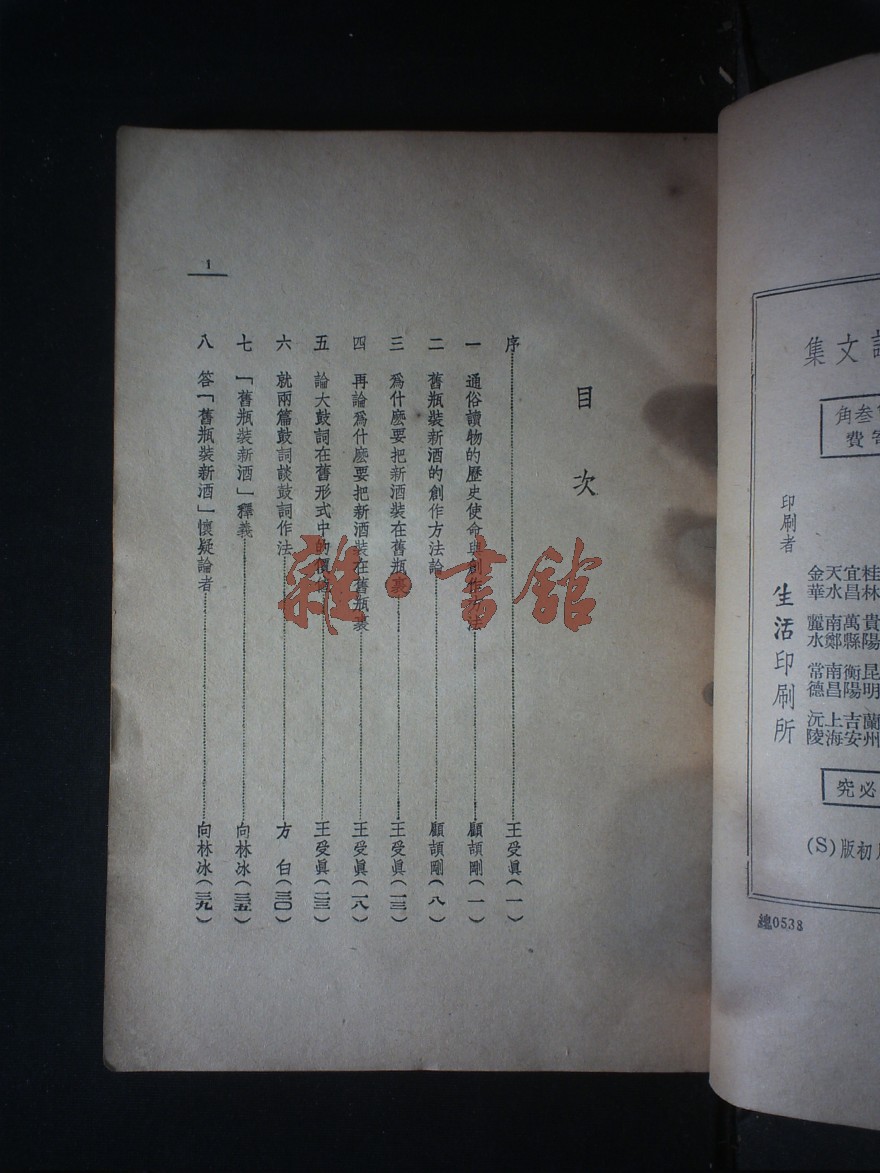 1
目次
序 王受眞(一)
一 通俗讀物的歷史使命與創作方法 顧頡剛(一)
二 舊瓶裝新酒的創作方法論 顧頡剛(八)
三 爲什麽要把新酒裝在舊瓶裏 王受眞(一三)
四 再論爲什麽要把新酒裝在舊瓶裏 王受眞(一八)
五 論大鼓詞在舊形式中的價值 王受眞(二三)
六 就兩篇鼓詞談鼓詞作法 方白(三〇)
七 「舊瓶裝新酒」釋義 向林冰(三五)
八 答「舊瓶裝新酒」懷疑論者 向林冰(三九)
雜·書館
文集
叁角
費
印刷者 生活印刷所
桂林 宜昌 天水 金華
貴陽 萬縣 南鄭 麗水
昆明 衡陽 南昌 常德
蘭州 吉安 上海 沅陵
必究
初版(S)
總0538